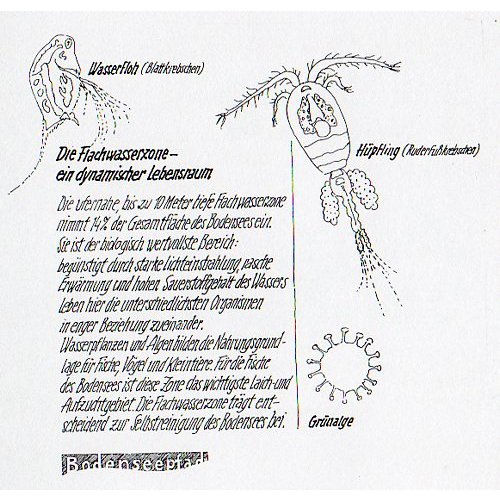 Wasserfloh (Blattkrebschen)
Hüpfling (Ruderfußkrebschen)
Die Flachwasserzone –
ein dynamischer Lebensraum
Die ufernahe, bis zu 10 Meter tiefe Flachwasserzone
nimmt 14% der Gesamtfläche des Bodensees ein.
Sie ist der biologisch wertvollste Bereich:
begünstigt durch starke Lichteinstrahlung, rasche
Erwärmung und hohen Sauerstoffgehalt des Wassers
leben hier die unterschiedlichsten Organismen
in enger Beziehung zueinander.
Wasserpflanzen und Algen bilden die Nahrungsgrund-
lage für Fische, Vögel und Kleintiere. Für die Fische
des Bodensees ist diese Zone das wichtigste Laich- und
Aufzuchtgebiet. Die Flachwasserzone trägt ent-
scheidend zur Selbstreinigung des Bodensees bei.
Grünalge
Bodenseepfad